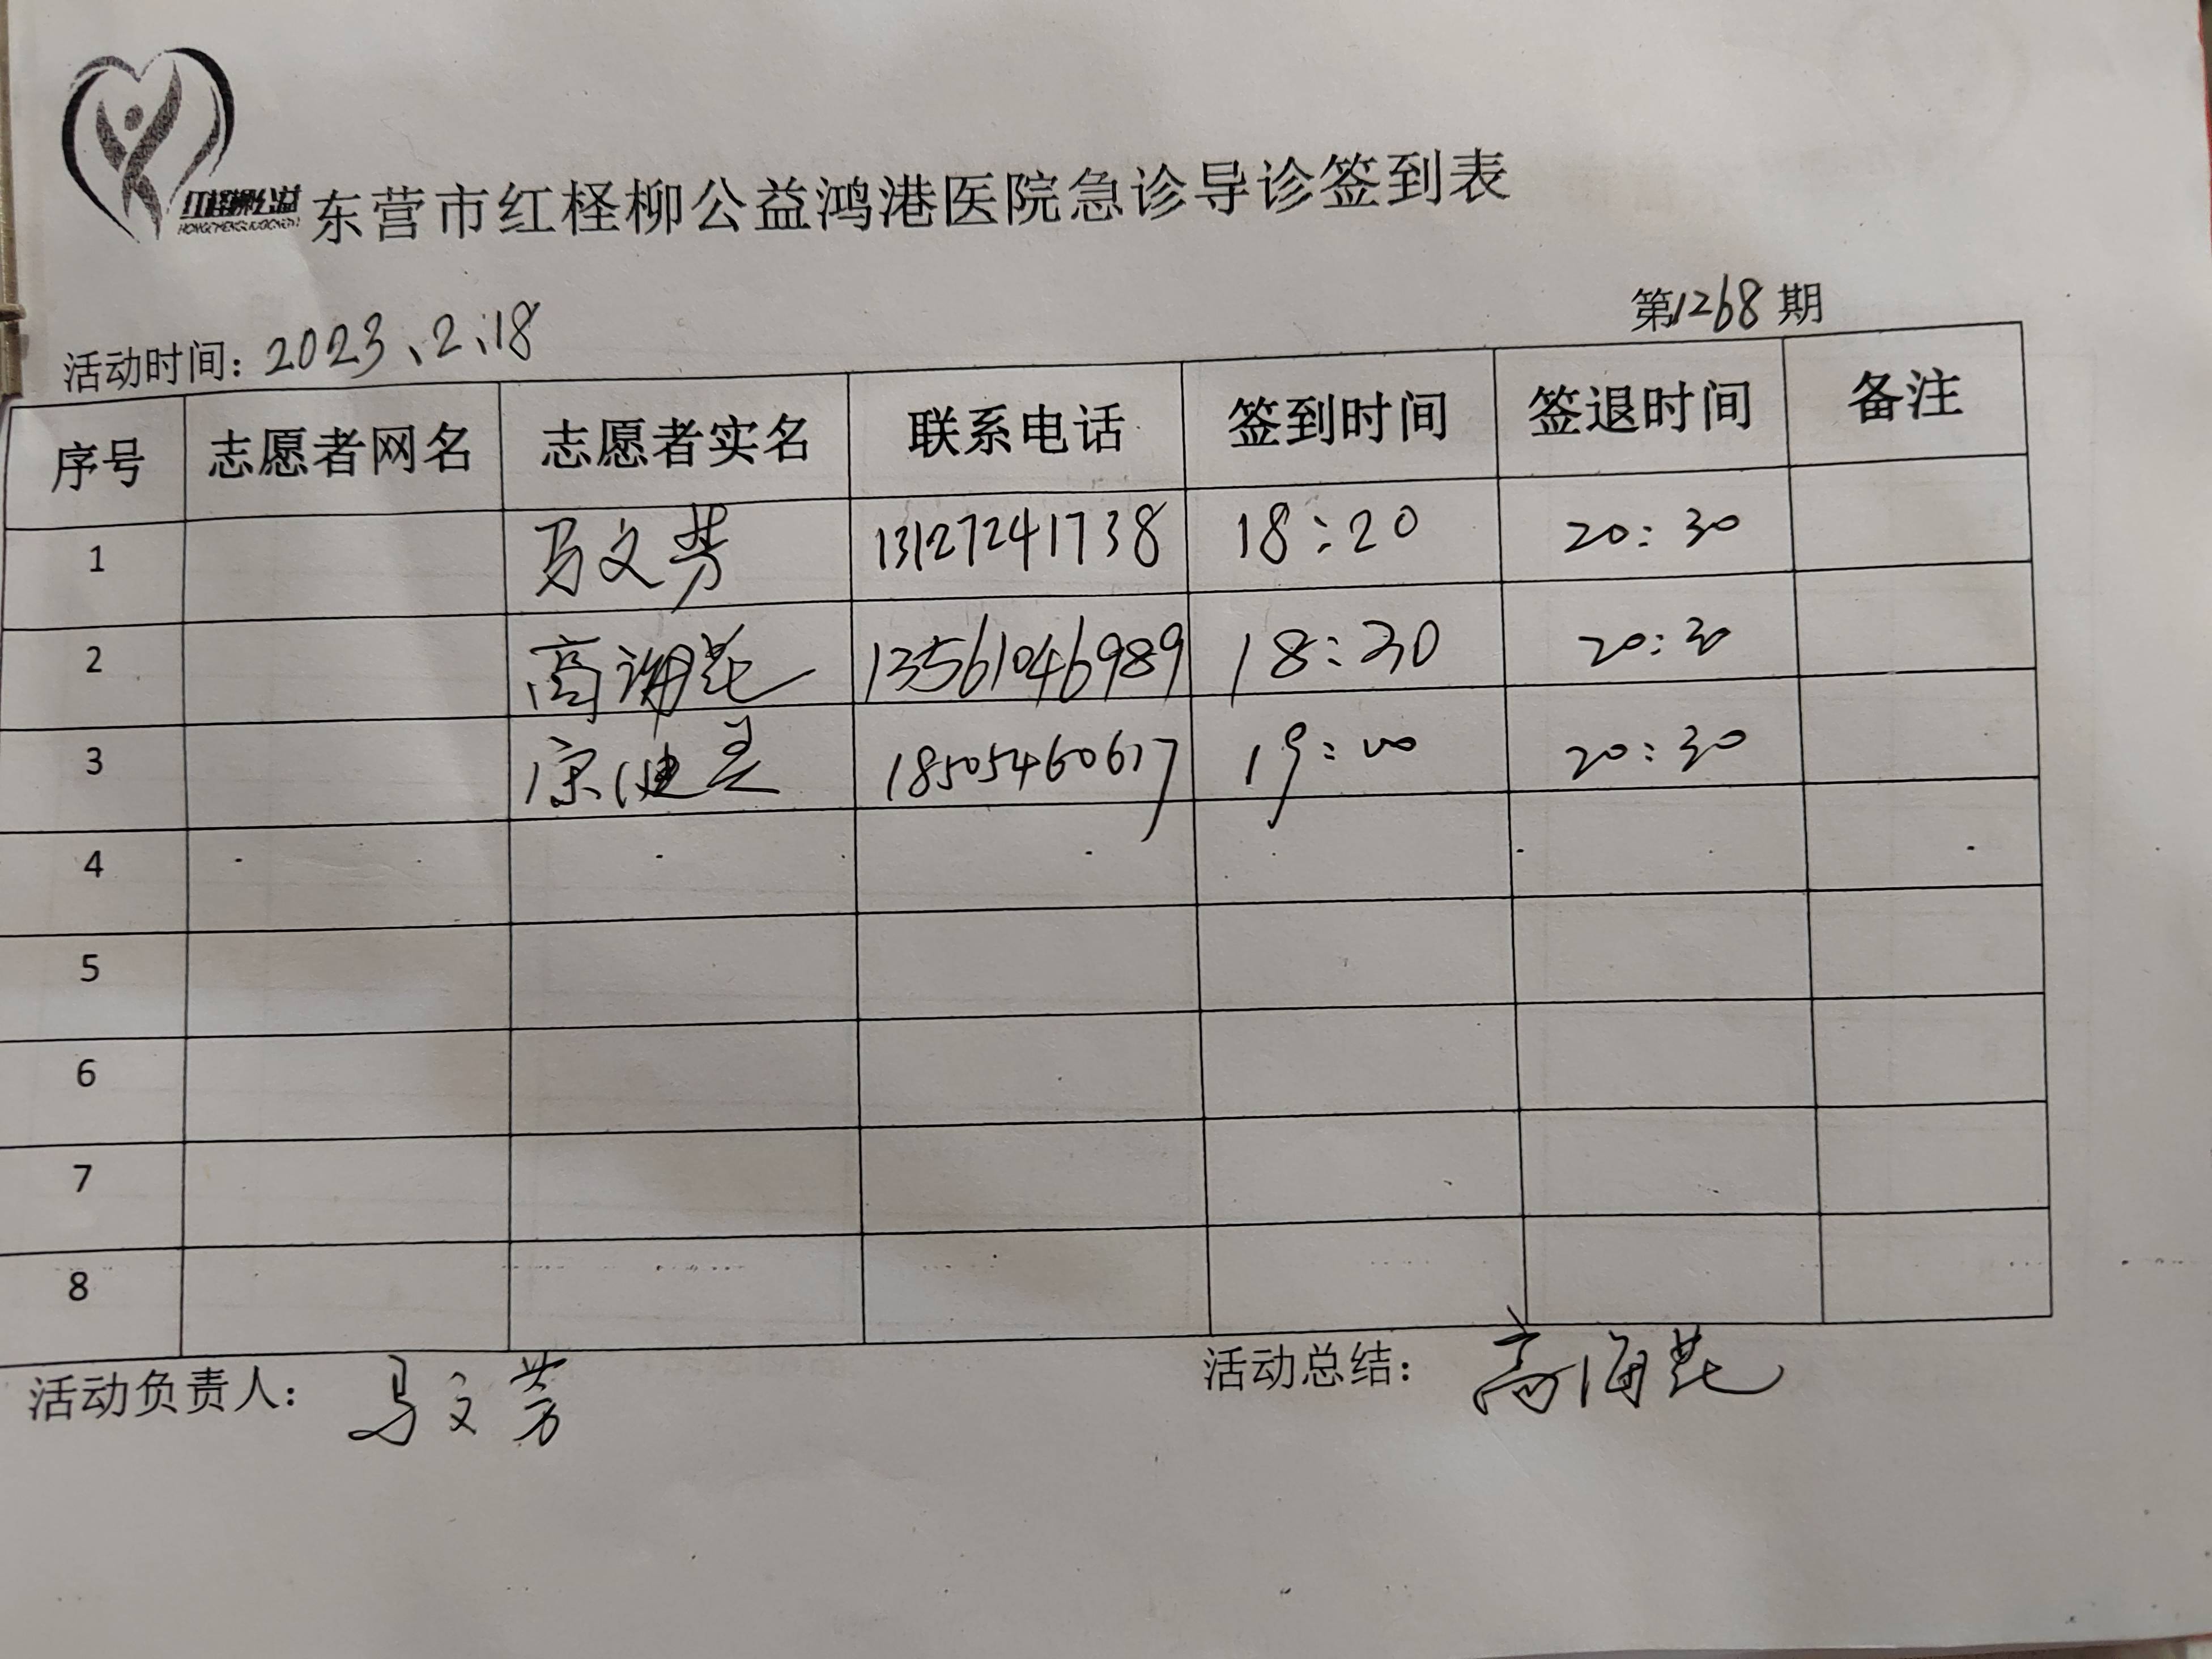 红柽柳公益
东营市红柽柳公益鸿港医院急诊导诊签到表
第1268期
活动时间：2023、2、18
序号 志愿者网名 志愿者实名 联系电话 签到时间 签退时间 备注
1 马文芳 13127241738 18:20 20:30
2 高 13561046989 18:30 20:30
3 18505460617 19:00 20:30
4
5
6
7
8
活动负责人：马文芳 活动总结：高海